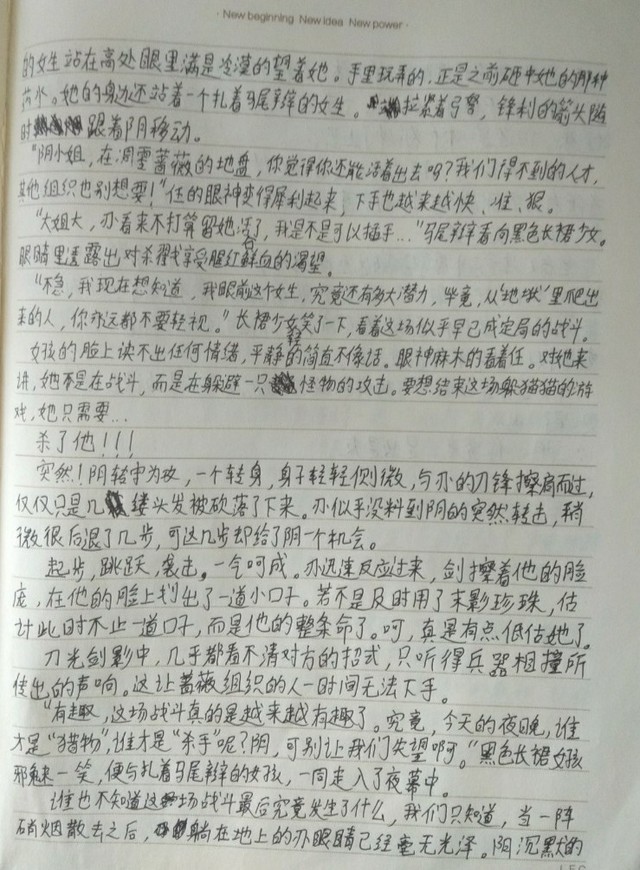 · New beginning New idea New power ·
的女生站在高处眼里满是冷漠的望着她。手里玩弄的,正是之前砸中她的那种
药水。她的身边还站着一个扎着马尾辫的女生。拉紧着弓弩,锋利的箭头随
时跟着阴移动。
"阴小姐,在凋零蔷薇的地盘,你觉得你还能活着出去吗?我们得不到的人才,
其他组织也别想要!"任的眼神变得犀利起来,下手也越来越快、准、狠。
"大姐大,亦看来不打算留她活了,我是不是可以插手..."马尾辫看向黑色长裙少女。
眼睛里透露出对杀戮或享受腥红鲜血的渴望。
"不急,我现在想知道,我眼前这个女生,究竟还有多大潜力,毕竟,从'地狱'里爬出
来的人,你永远都不要轻视。"长裙少女笑了一下,看着这场似乎早已成定局的战斗。
女孩的脸上读不出任何情绪,平静的简直不像话。眼神麻木的看着任。对她来
讲,她不是在战斗,而是在躲避一只怪物的攻击。要想结束这场躲猫猫的游
戏,她只需要...
杀了他!!!
突然!阴转守为攻,一个转身,身子轻轻侧微,与亦的刀锋擦肩而过,
仅仅只是几缕头发被砍落了下来。亦似乎没料到阴的突然转击,稍
微很后退了几步,可这几步却给了阴一个机会。
起步,跳跃,袭击。一气呵成。亦迅速反应过来,剑擦着他的脸
庞,在他的脸上划出了一道小口子。若不是及时用了末影珍珠,估
计此时不止一道口子,而是他的整条命了。呵,真是有点低估她了。
刀光剑影中,几乎都看不清对方的招式,只听得兵器相撞所
传出的声响。这让蔷薇组织的人一时间无法下手。
"有趣,这场战斗真的是越来越有趣了。究竟,今天的夜晚,谁
才是"猎物",谁才是"杀手"呢?阴,可别让我们失望啊。"黑色长裙女孩
邪魅一笑,便与扎着马尾辫的女孩,一同走入了夜幕中。
谁也不知道这场战斗最后究竟发生了什么,我们只知道,当一阵
硝烟散去之后,躺在地上的亦眼睛已经毫无光泽。阴沉默的